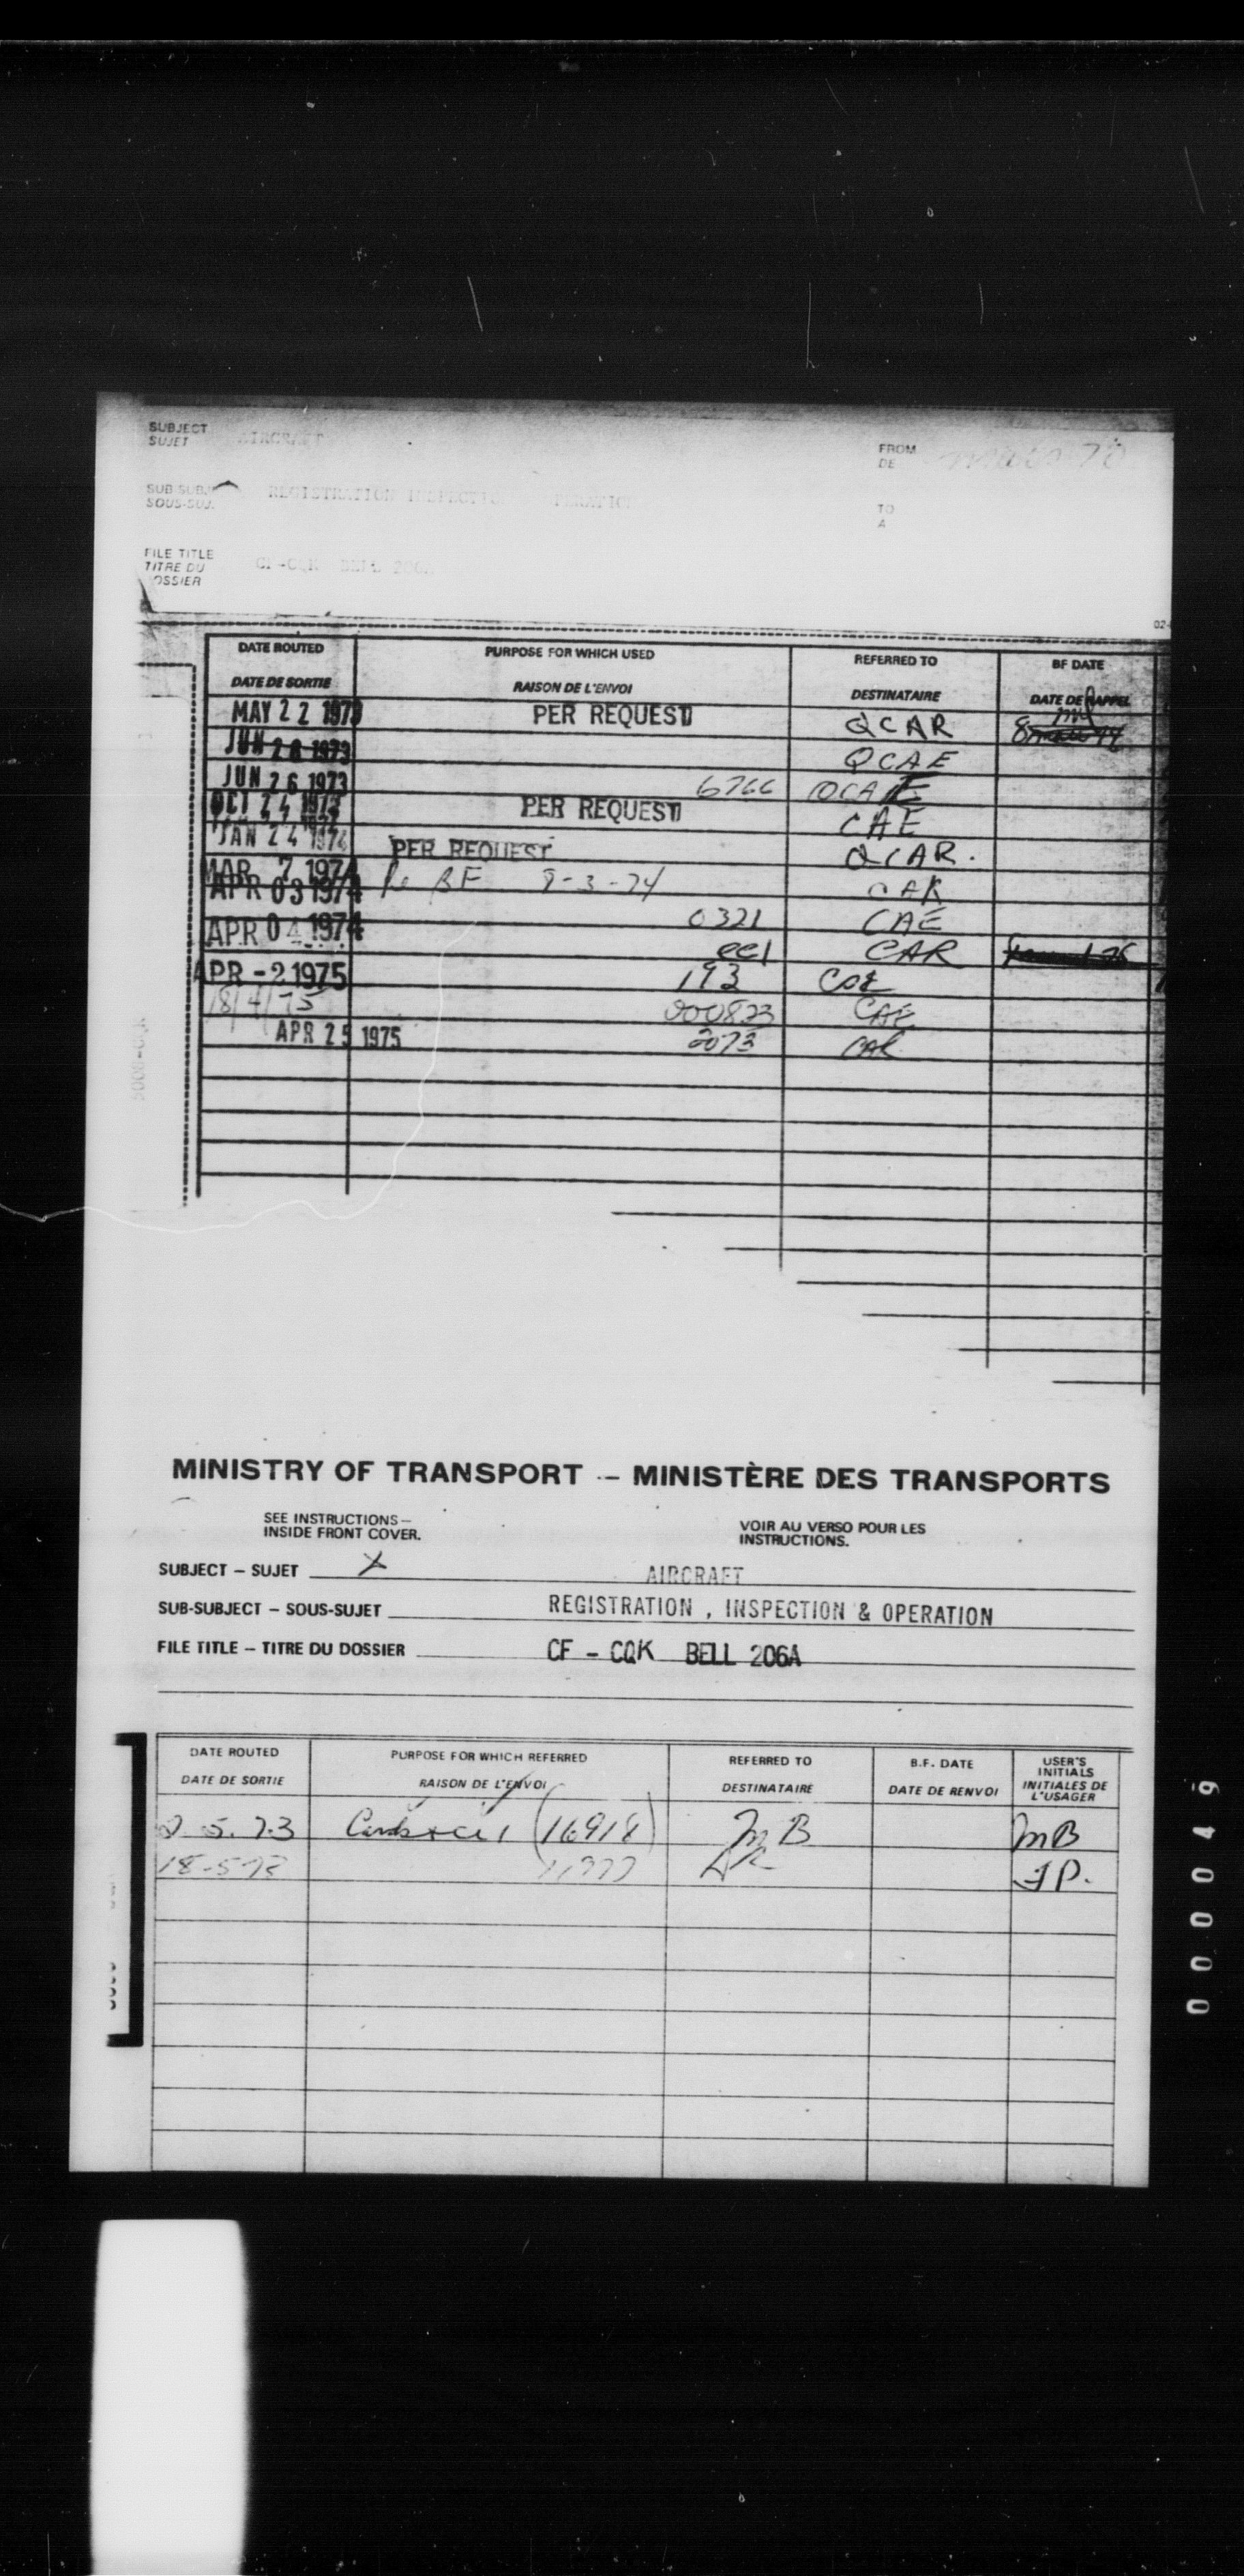 SUBJECT
SUJET AIRCRAFT
FROM
DE
SUB SUBJ.
SOUS-SUJ. REGISTRATION INSPECTION
TO
A
FILE TITLE
TITRE DU
DOSSIER
CF-CQK BELL 206A
02-
DATE ROUTED PURPOSE FOR WHICH USED REFERRED TO BF DATE
DATE DE SORTIE RAISON DE L'ENVOI DESTINATAIRE DATE DE RAPPEL
MAY 22 1973 PER REQUEST QCAR
JUN 28 1973 QCAE
JUN 26 1973 6766 QCAE
OCT 24 1973 PER REQUEST CAE
JAN 24 1974 PER REQUEST QCAR.
MAR 7 1974
APR 03 1974 BF 8-3-74 CAR
APR 04 1974 0321 CAE
CAR
APR -2 1975 193
18/4/75 000823 CAE
APR 25 1975 2073 CAR
MINISTRY OF TRANSPORT – MINISTÈRE DES TRANSPORTS
SEE INSTRUCTIONS –
INSIDE FRONT COVER.
VOIR AU VERSO POUR LES
INSTRUCTIONS.
SUBJECT – SUJET X AIRCRAFT
SUB-SUBJECT – SOUS-SUJET REGISTRATION , INSPECTION & OPERATION
FILE TITLE – TITRE DU DOSSIER CF - CQK BELL 206A
DATE ROUTED PURPOSE FOR WHICH REFERRED REFERRED TO B.F. DATE USER'S INITIALS
DATE DE SORTIE RAISON DE L'ENVOI DESTINATAIRE DATE DE RENVOI INITIALES DE L'USAGER
5.73 (16918) MB MB
JP.
000049